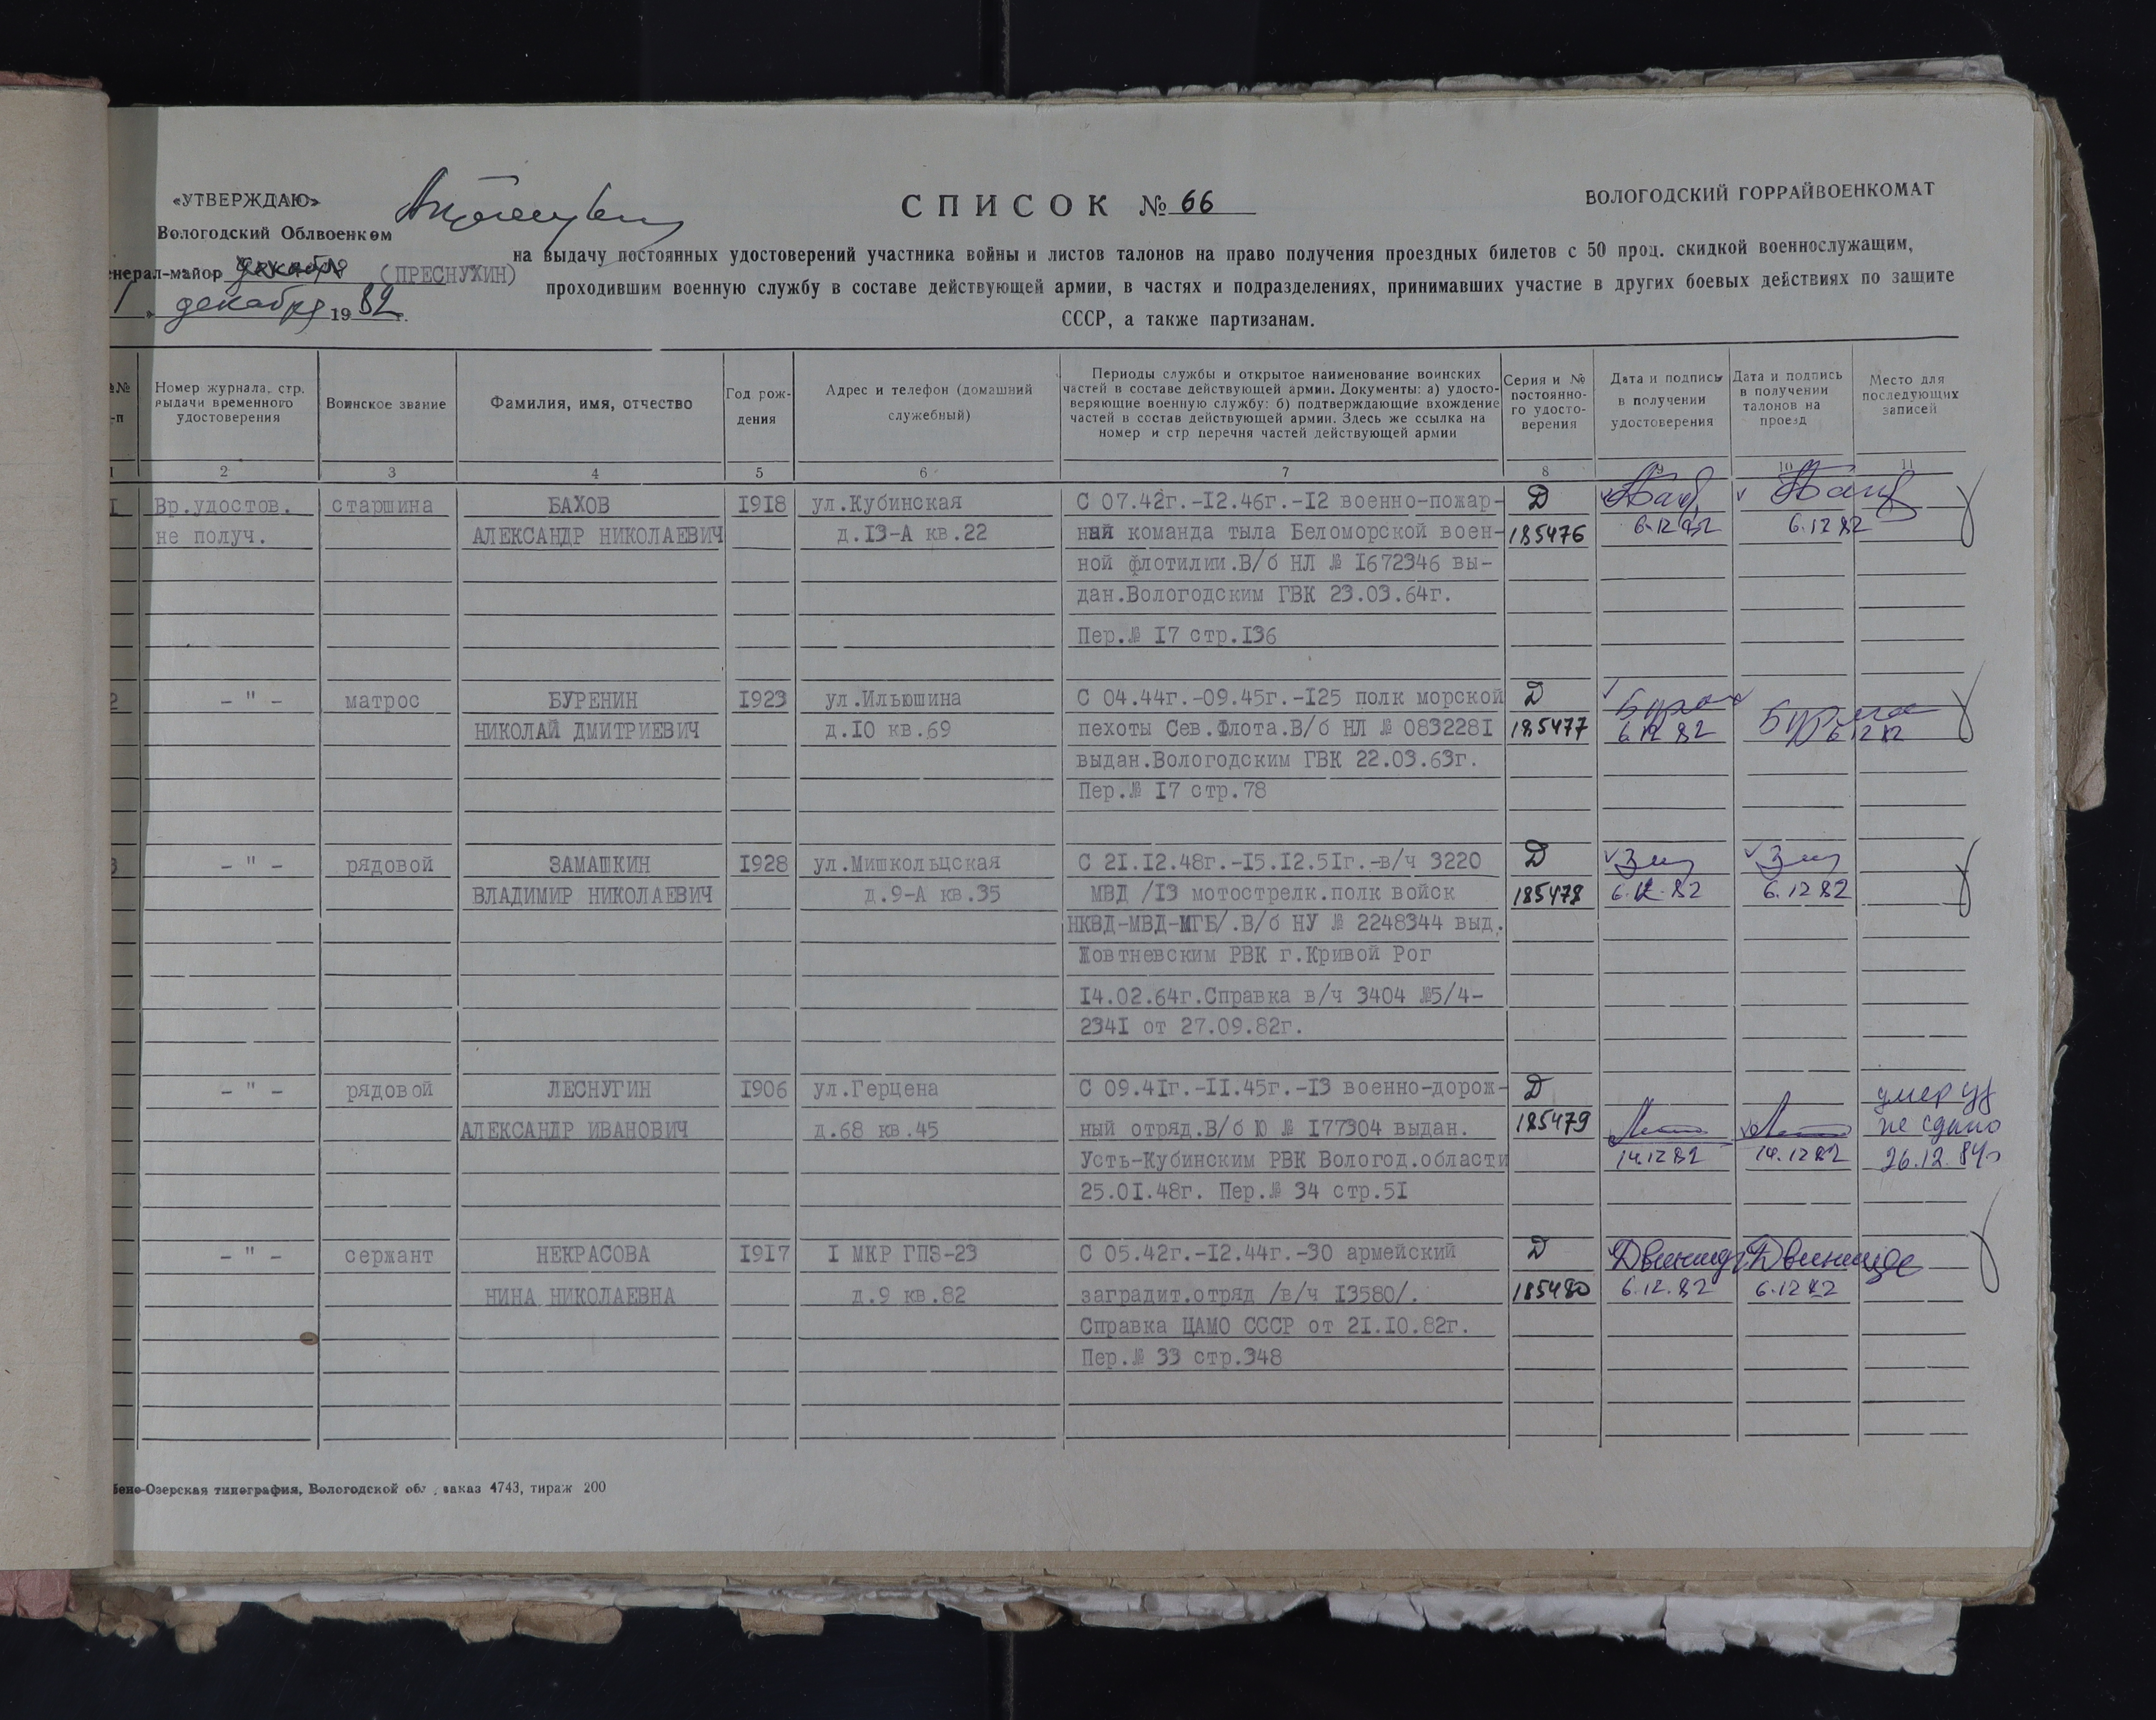 «УТВЕРЖДАЮ»
Вологодский Облвоенком
енерал-майор декабря (ПРЕСНУХИН)
декабря 1982 г.
СПИСОК № 66
ВОЛОГОДСКИЙ ГОРРАЙВОЕНКОМАТ
на выдачу постоянных удостоверений участника войны и листов талонов на право получения проездных билетов с 50 проц. скидкой военнослужащим,
проходившим военную службу в составе действующей армии, в частях и подразделениях, принимавших участие в других боевых действиях по защите
СССР, а также партизанам.
№№ -п
Номер журнала, стр. выдачи временного удостоверения
Воинское звание
Фамилия, имя, отчество
Год рож- дения
Адрес и телефон (домашний служебный)
Периоды службы и открытое наименование воинских
частей в составе действующей армии. Документы: а) удосто-
веряющие военную службу: б) подтверждающие вхождение
частей в состав действующей армии. Здесь же ссылка на
номер и стр перечня частей действующей армии
Серия и № постоянно- го удосто- верения
Дата и подпись в получении удостоверения
Дата и подпись в получении талонов на проезд
Место для последующих записей
1 2 3 4 5 6 7 8 9 10 11
1 Вр.удостов. старшина БАХОВ 1918 ул.Кубинская С 07.42г.-12.46г.-12 военно-пожар- Д
не получ. АЛЕКСАНДР НИКОЛАЕВИЧ д.13-А кв.22 ная команда тыла Беломорской воен- 185476 6.12.82 6.12 82
ной флотилии.В/б НЛ № 1672346 вы-
дан.Вологодским ГВК 23.03.64г.
Пер.№ 17 стр.136
2 - " - матрос БУРЕНИН 1923 ул.Ильюшина С 04.44г.-09.45г.-125 полк морской Д
НИКОЛАЙ ДМИТРИЕВИЧ д.10 кв.69 пехоты Сев.Флота.В/б НЛ № 0832281 185477 6.12 82 6 12 82
выдан.Вологодским ГВК 22.03.63г.
Пер.№ 17 стр.78
3 - " - рядовой ЗАМАШКИН 1928 ул.Мишкольцская С 21.12.48г.-15.12.51г.-в/ч 3220 Д
ВЛАДИМИР НИКОЛАЕВИЧ д.9-А кв.35 МВД /13 мотострелк.полк войск 185478 6.12.82 6.12 82
НКВД-МВД-МГБ/.В/б НУ № 2248344 выд.
Жовтневским РВК г.Кривой Рог
14.02.64г.Справка в/ч 3404 №5/4-
2341 от 27.09.82г.
- " - рядовой ЛЕСНУГИН 1906 ул.Герцена С 09.41г.-11.45г.-13 военно-дорож- Д умер уд
АЛЕКСАНДР ИВАНОВИЧ д.68 кв.45 ный отряд.В/б Ю № 177304 выдан. 185479 не сдано
Усть-Кубинским РВК Вологод.области 14.12 82 14.12 82 26.12.84г
25.01.48г. Пер.№ 34 стр.51
- " - сержант НЕКРАСОВА 1917 1 МКР ГПЗ-23 С 05.42г.-12.44г.-30 армейский Д
НИНА НИКОЛАЕВНА д.9 кв.82 заградит.отряд /в/ч 13580/. 185480 6.12.82 6.12 82
Справка ЦАМО СССР от 21.10.82г.
Пер.№ 33 стр.348
бене-Озерская типография, Вологодской обл, заказ 4743, тираж 200